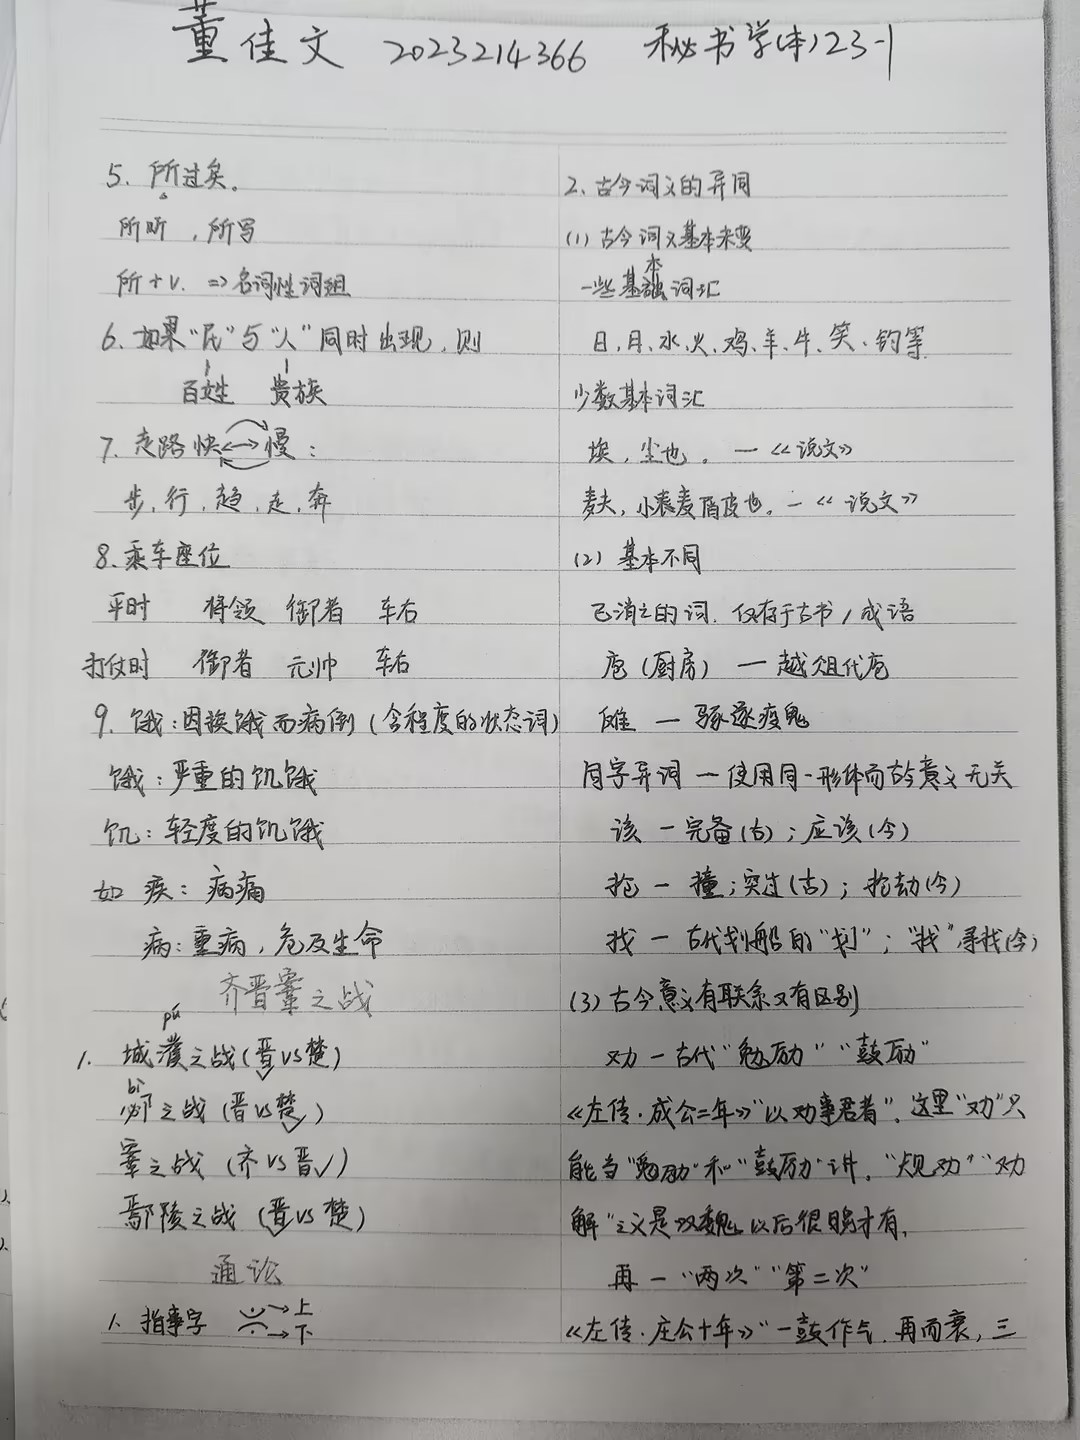 董佳文 2023214366 秘书学(本)23-1
5. 所过矣.
所听 , 所写
所 + v. => 名词性词组
6. 如果“民”与“人”同时出现, 则
百姓 贵族
7. 走路快<->慢:
步, 行, 趋, 走, 奔
8. 乘车座位
平时 将领 御者 车右
打仗时 御者 元帅 车右
9. 饿: 因挨饿而病倒 (含程度的状态词)
饿: 严重的饥饿
饥: 轻度的饥饿
如 疾: 病痛
病: 重病, 危及生命
齐晋鞌之战
pú
1. 城濮之战 (晋 vs 楚)
bì
邲之战 (晋 vs 楚)
鞌之战 (齐 vs 晋√)
鄢陵之战 (晋 vs 楚)
通论
1. 指事字 →上
→下
2. 古今词义的异同
(1) 古今词义基本未变
一些基本词汇
日、月、水、火、鸡、羊、牛、笑、钓等
少数基本词汇
埃, 尘也。—《说文》
麸, 小麦屑皮也。—《说文》
(2) 基本不同
已消亡的词, 仅存于古书/成语
庖 (厨房) — 越俎代庖
傩 — 驱逐疫鬼
同字异词 — 使用同一形体而古今意义无关
该 — 完备(古); 应该(今)
抢 — 撞; 突过(古); 抢劫(今)
找 — 古代划船的“划”; “找”寻找(今)
(3) 古今意义有联系又有区别
劝 — 古代“勉励”“鼓励”
《左传·成公二年》“以劝事君者”, 这里“劝”只
能当“勉励”和“鼓励”讲, “规劝”“劝
解”之义是汉魏以后很晚才有,
再 — “两次”“第二次”
《左传·庄公十年》“一鼓作气, 再而衰, 三